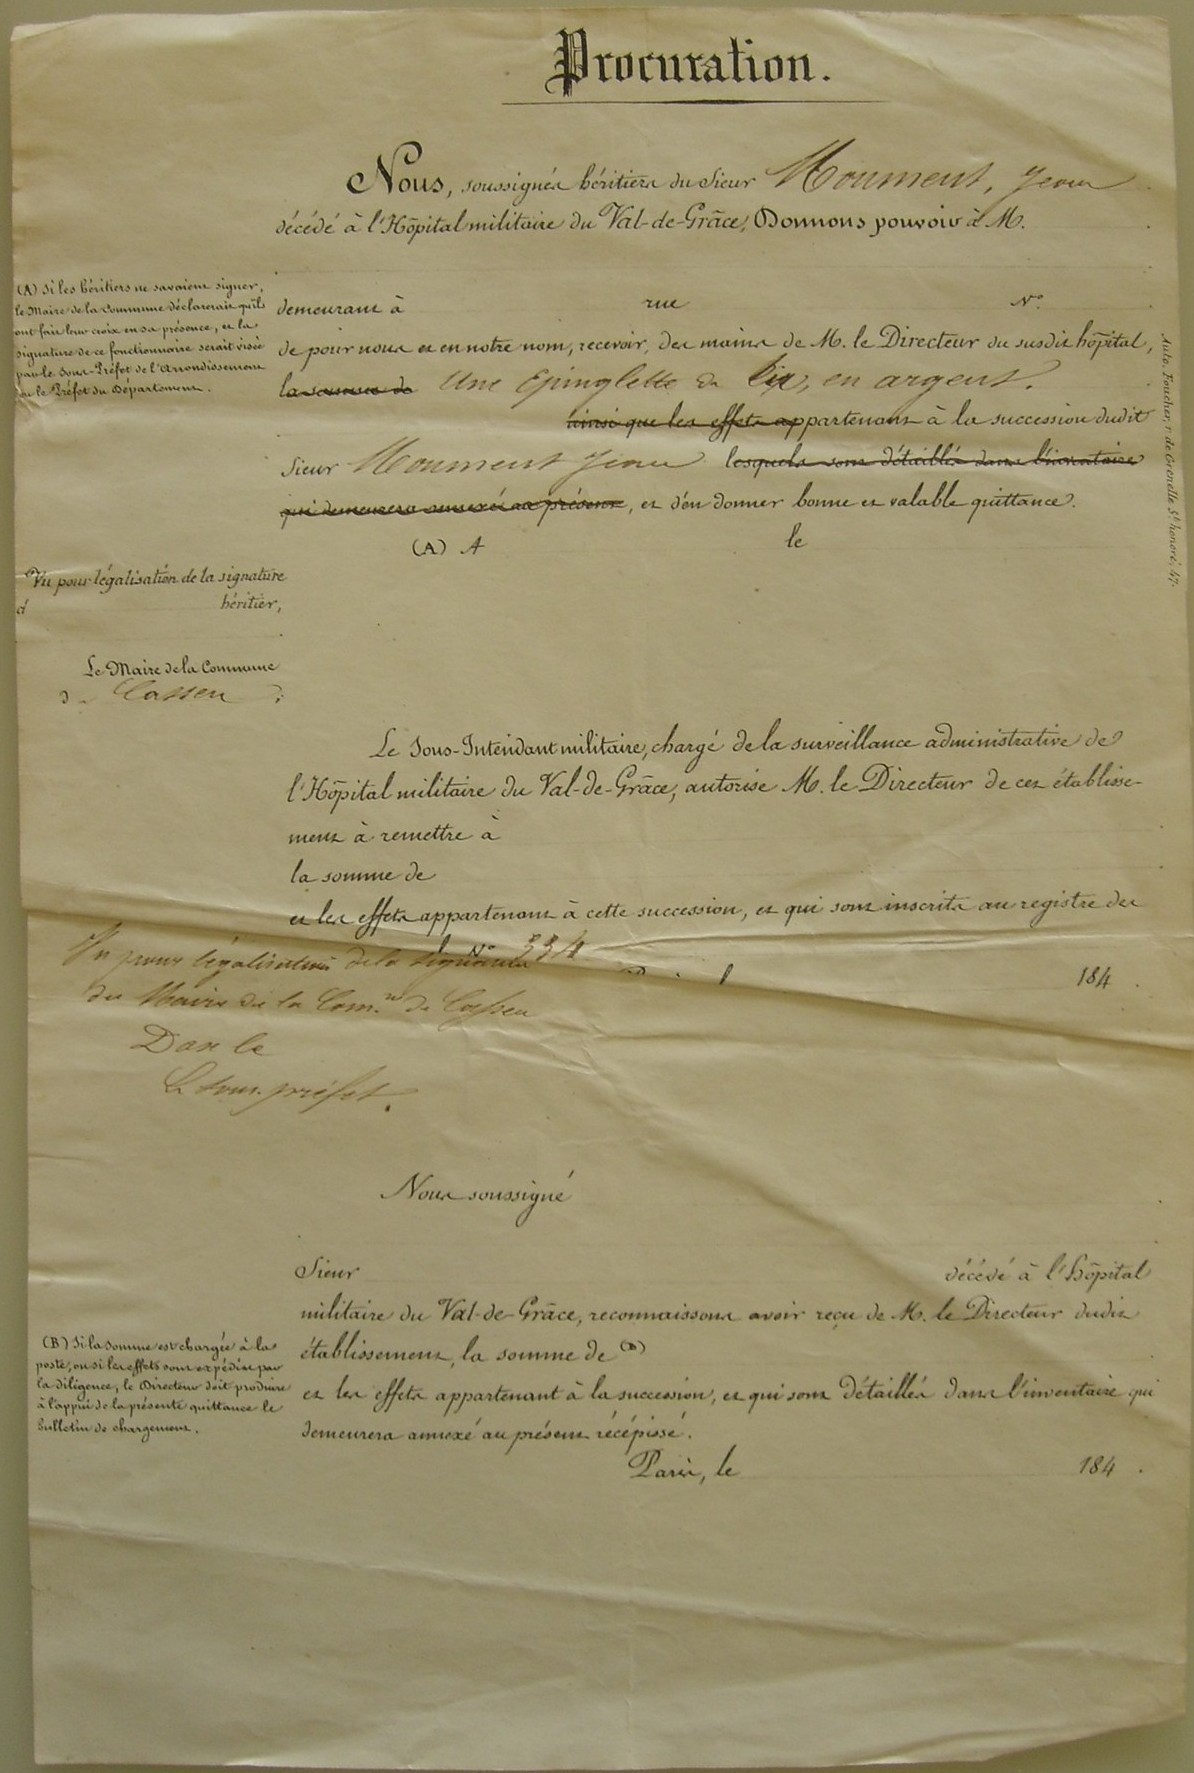 Procuration.
Nous, soussignés héritiers du Sieur Moument, Jean
décédé à l'Hôpital militaire du Val-de-Grâce, Donnons pouvoir à M.
(A) Si les héritiers ne savaient signer,
le Maire de la Commune déclarerait qu'ils
ont fait leur croix en sa présence, et la
signature de ce fonctionnaire serait visée
par le Sous-Préfet de l'Arrondissement
ou le Préfet du Département.
demeurant à rue N°
de pour nous et en notre nom, recevoir, des mains de M. le Directeur du susdit hôpital,
la somme de Une Epinglette de tir, en argent.
ainsi que les effets appartenant à la succession dudit
Sieur Moument Jean lesquels sont détaillés dans l'inventaire
qui demeurera annexé au présent, et d'en donner bonne et valable quittance.
(A) A le
Auto. Foucher, r. de Grenelle St. honoré, 47.
Vu pour légalisation de la signature
d héritier,
Le Maire de la Commune
d e Cassen
Le Sous-Intendant militaire, chargé de la surveillance administrative de
l'Hôpital militaire du Val-de-Grâce, autorise M. le Directeur de cet établisse-
ment à remettre à
la somme de
et les effets appartenant à cette succession, et qui sont inscrits au registre des
N° 334
184 .
Vu pour légalisation de la signature
du Maire de la Com.ne de Cassen
Dax le
Le sous-préfet.
Nous soussigné
Sieur décédé à l'hôpital
militaire du Val-de-Grâce, reconnaissons avoir reçu de M. le Directeur dudit
établissement, la somme de (B)
et les effets appartenant à la succession, et qui sont détaillés dans l'inventaire qui
demeurera annexé au présent récépissé.
Paris, le 184 .
(B) Si la somme est chargée à la
poste, ou si les effets sont expédiés par
la diligence, le Directeur doit produire
à l'appui de la présente quittance le
bulletin de chargement.